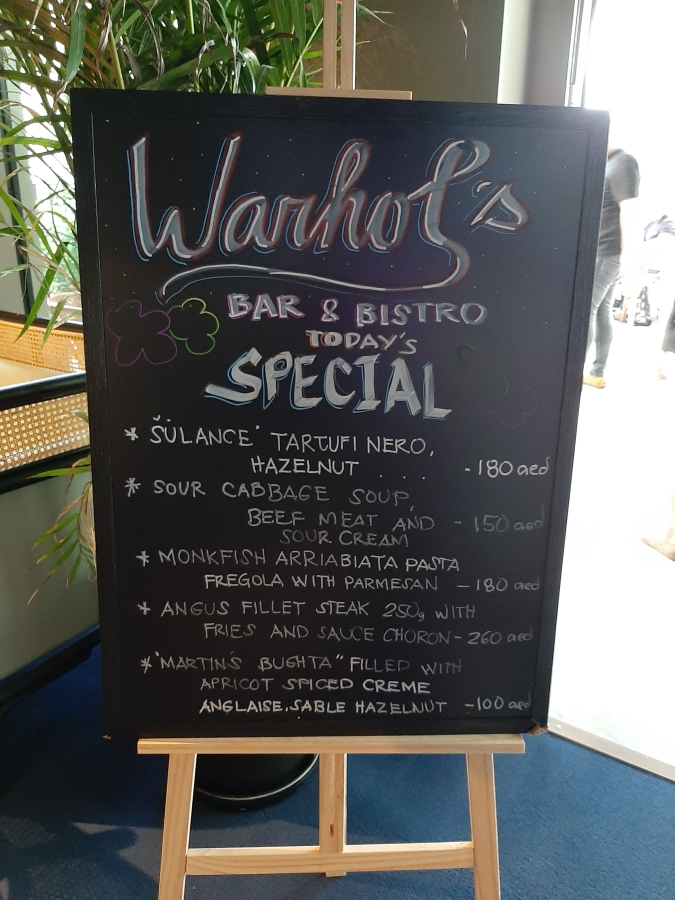 Warhol's
BAR & BISTRO
TODAY'S
SPECIAL
* ŠULANCE" TARTUFI NERO,
HAZELNUT . . . . -180 aed
* SOUR CABBAGE SOUP,
BEEF MEAT AND - 150 aed
SOUR CREAM
* MONKFISH ARRIABIATA PASTA
FREGOLA WITH PARMESAN - 180 aed
* ANGUS FILLET STEAK 250g WITH
FRIES AND SAUCE CHORON - 260 aed
* "MARTIN'S BUGHTA" FILLED WITH
APRICOT SPICED CREME
ANGLAISE, SABLE HAZELNUT -100 aed